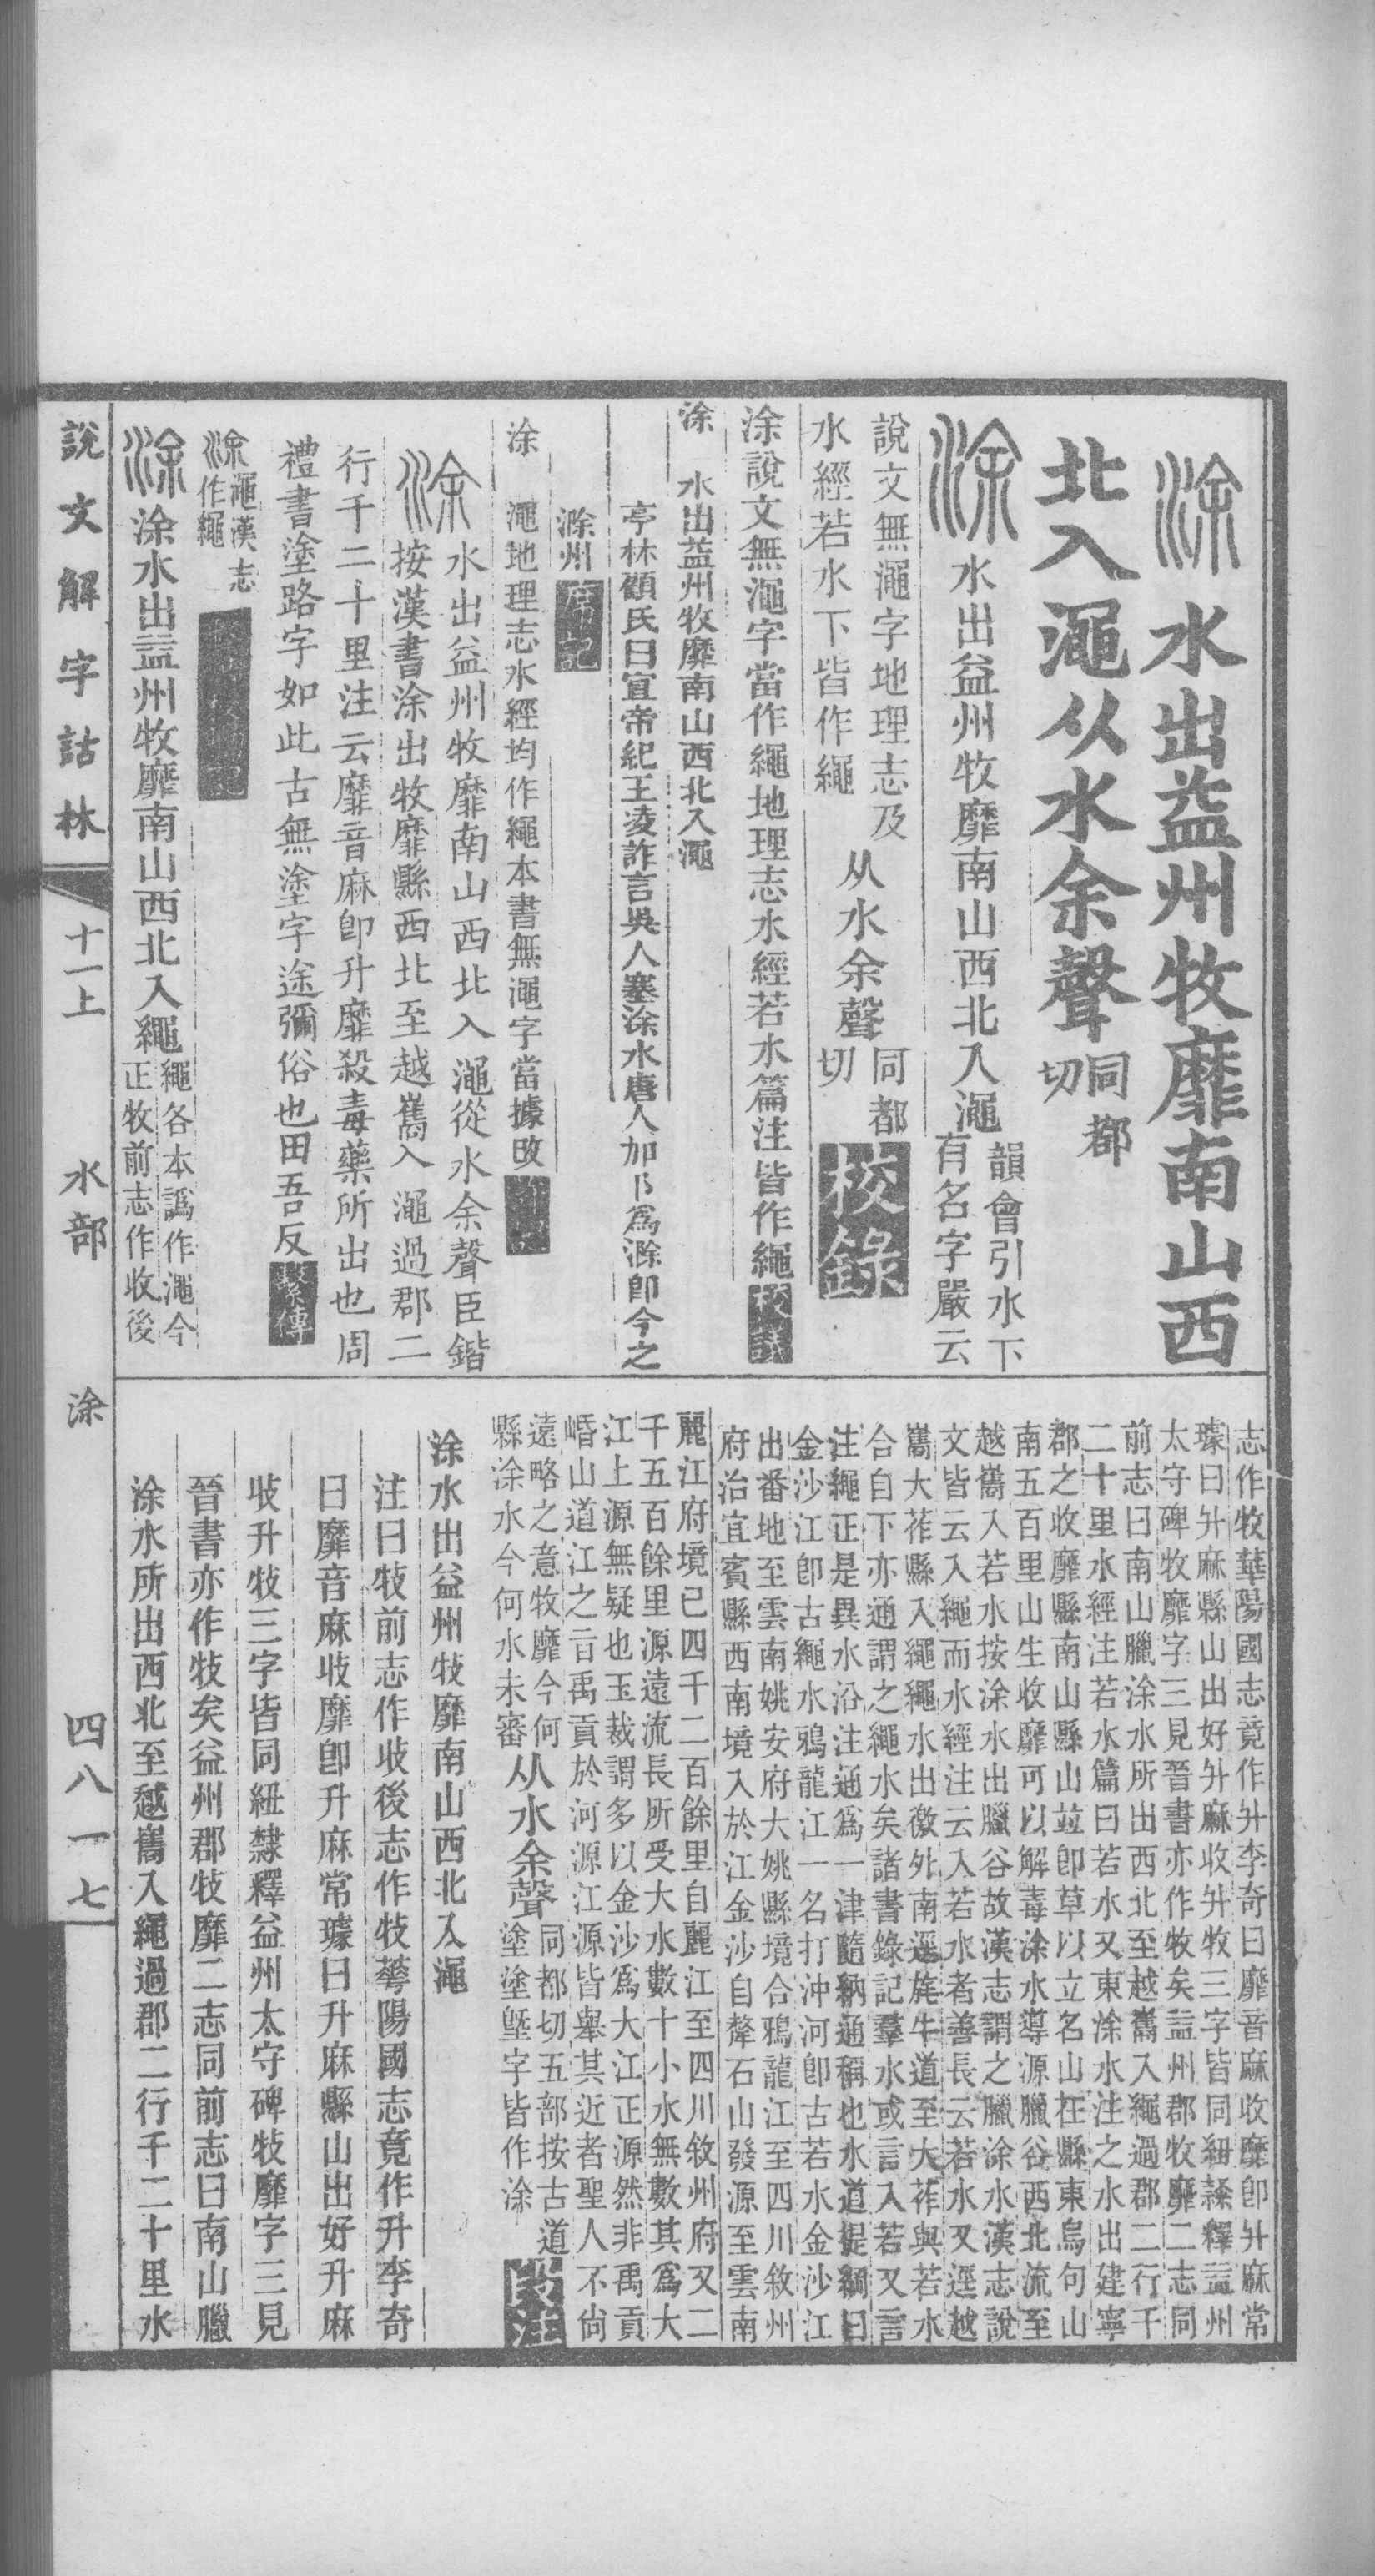 涂 水出益州牧靡南山西
北入澠从水余聲同都
切
涂水出益州牧靡南山西北入澠韻會引水下
有名字嚴云
說文無澠字地理志及
水經若水下皆作繩
从水余聲同都
切校錄
涂說文無澠字當作繩地理志水經若水篇注皆作繩校議
涂 水出益州牧靡南山西北入澠
亭林顧氏曰宣帝紀王凌詐言吳人塞涂水唐人加阝爲滁卽今之
滁州席記
涂 澠地理志水經均作繩本書無澠字當據改
涂水出益州牧靡南山西北入澠從水余聲臣鍇
按漢書涂出牧靡縣西北至越巂入澠過郡二
行千二十里注云靡音麻卽升靡殺毒藥所出也周
禮書塗路字如此古無塗字途彌俗也田吾反繫傳
涂澠漢志
作繩
涂涂水出益州牧靡南山西北入繩繩各本譌作澠今
正牧前志作收後
志作牧華陽國志竟作升李奇曰靡音麻收靡卽升麻常
璩曰升麻縣山出好升麻收升牧三字皆同紐隸釋益州
太守碑牧靡字三見晉書亦作牧矣益州郡牧靡二志同
前志曰南山臘涂水所出西北至越巂入繩過郡二行千
二十里水經注若水篇曰若水又東涂水注之水出建寧
郡之收靡縣南山縣山並卽草以立名山在縣東烏句山
南五百里山生收靡可以解毒涂水導源臘谷西北流至
越巂入若水按涂水出臘谷故漢志謂之臘涂水漢志說
文皆云入繩而水經注云入若水者善長云若水又逕越
巂大莋縣入繩繩水出徼外南逕旄牛道至大莋與若水
合自下亦通謂之繩水矣諸書錄記羣水或言入若又言
注繩正是異水沿注通爲一津隨納通稱也水道提綱曰
金沙江卽古繩水鴉龍江一名打沖河卽古若水金沙江
出番地至雲南姚安府大姚縣境合鴉龍江至四川敘州
府治宜賓縣西南境入於江金沙自犛石山發源至雲南
麗江府境已四千二百餘里自麗江至四川敘州府又二
千五百餘里源遠流長所受大水數十小水無數其爲大
江上源無疑也玉裁謂多以金沙爲大江正源然非禹貢
㟭山道江之㫖禹貢於河源江源皆舉其近者聖人不尙
遠略之意牧靡今何
縣涂水今何水未審从水余聲同都切五部按古道
塗塗墍字皆作涂段注
涂水出益州牧靡南山西北入澠
注曰牧前志作收後志作牧華陽國志竟作升李奇
曰靡音麻收靡卽升麻常璩曰升麻縣山出好升麻
收升牧三字皆同紐隸釋益州太守碑牧靡字三見
晉書亦作牧矣益州郡牧靡二志同前志曰南山臘
涂水所出西北至越巂入繩過郡二行千二十里水
說文解字詁林
十一上
水部
涂
四八一七